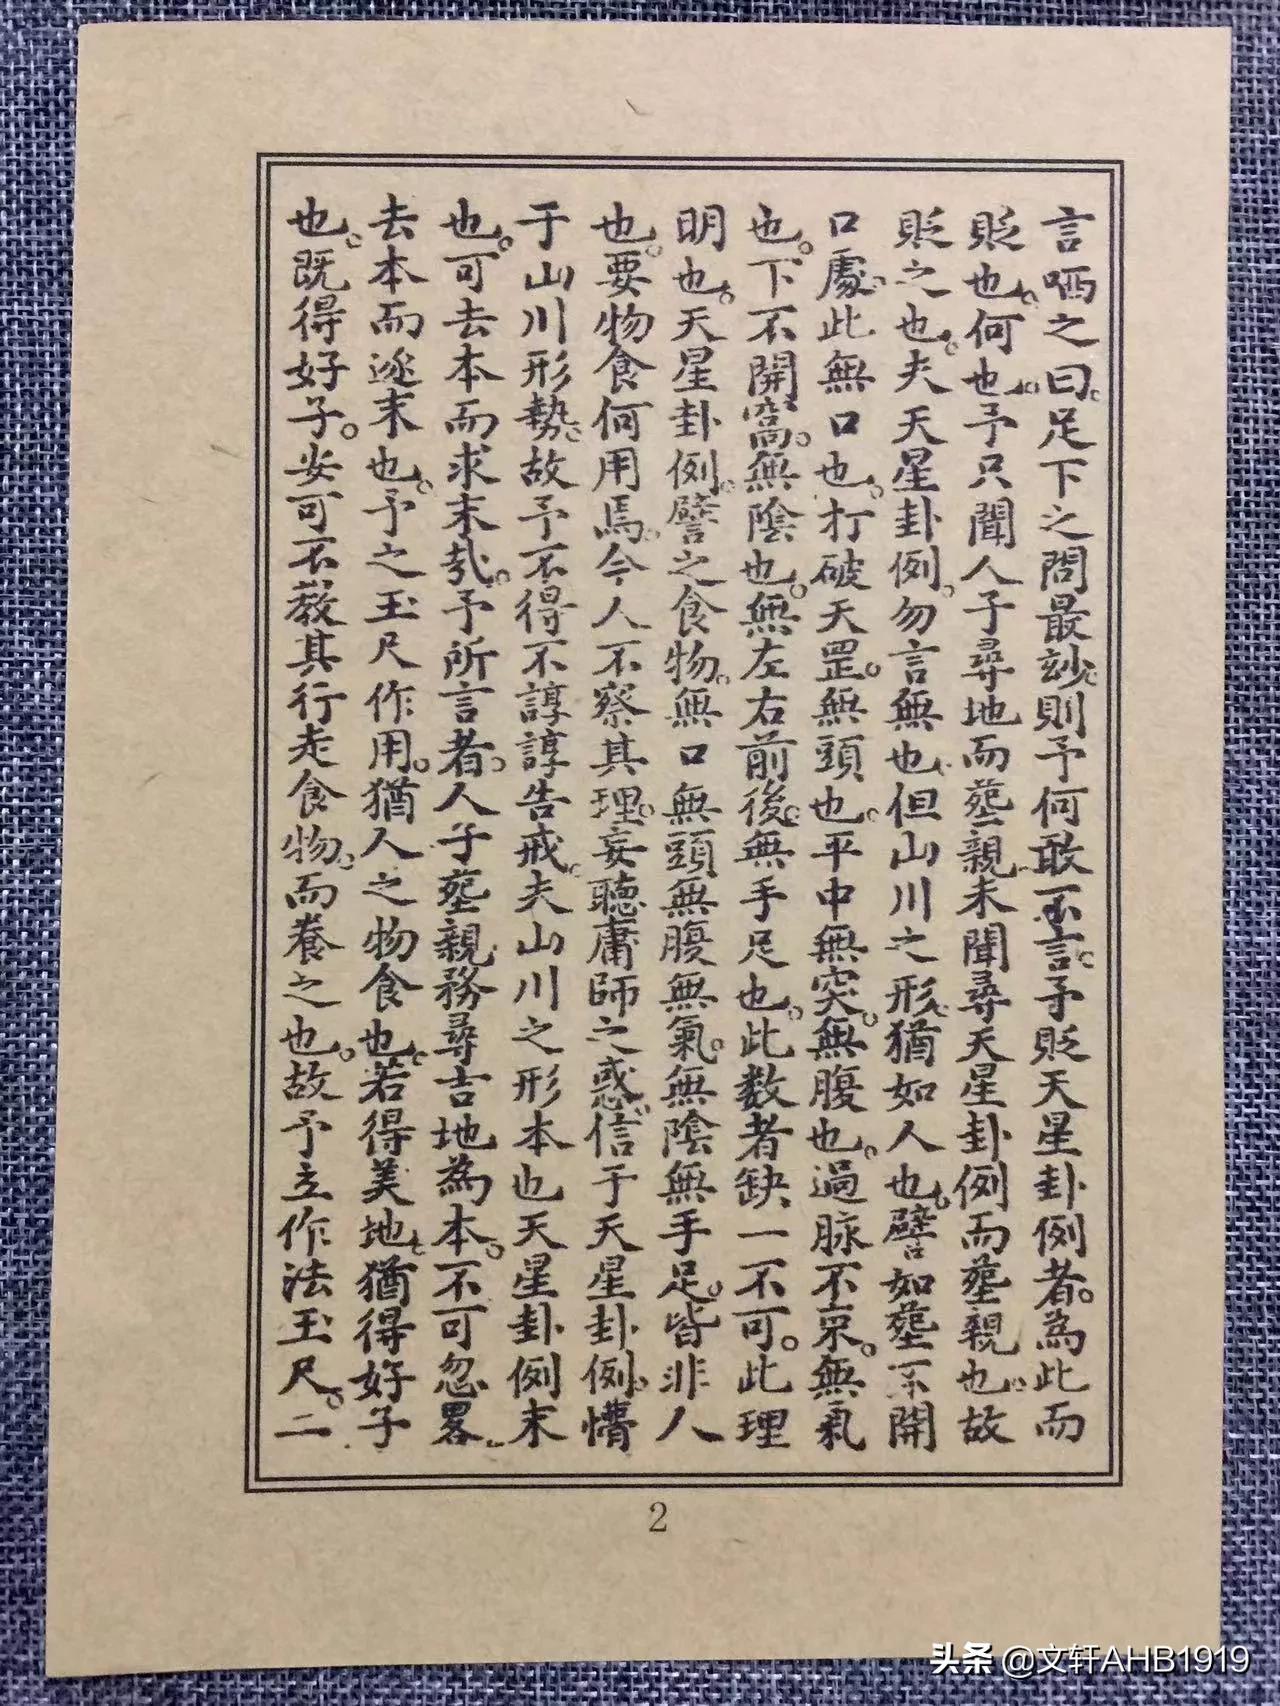 言哂之曰。足下之問最玅。則予何敢不言。予貶天星卦例者。為此而
貶也。何也。予只聞人子尋地而塟親。未聞尋天星卦例而塟親也。故
貶之也。夫天星卦例。勿言無也。但山川之形。猶如人也。譬如塟不開
口處。此無口也。打破天罡。無頭也。平中無突。無腹也。過脉不宗。無氣
也。下不開窩。無陰也。無左右前後。無手足也。此数者缺一不可。此理
明也。天星卦例。譬之食物。無口無頭無腹無氣。無陰無手足。皆非人
也。要物食何用焉。今人不察其理。妄聽庸師之惑。信于天星卦例。懵
于山川形勢。故予不得不諄諄告戒。夫山川之形本也天星卦例末
也。可去本而求末㢤。予所言者。人子塟親務尋吉地為本。不可忽畧。
去本而逐末也。予之玉尺作用。猶人之物食也。若得美地。猶得好子
也。既得好子。安可不教其行走食物。而養之也。故予立作法玉尺。二
2
头条 @文轩AHB1919